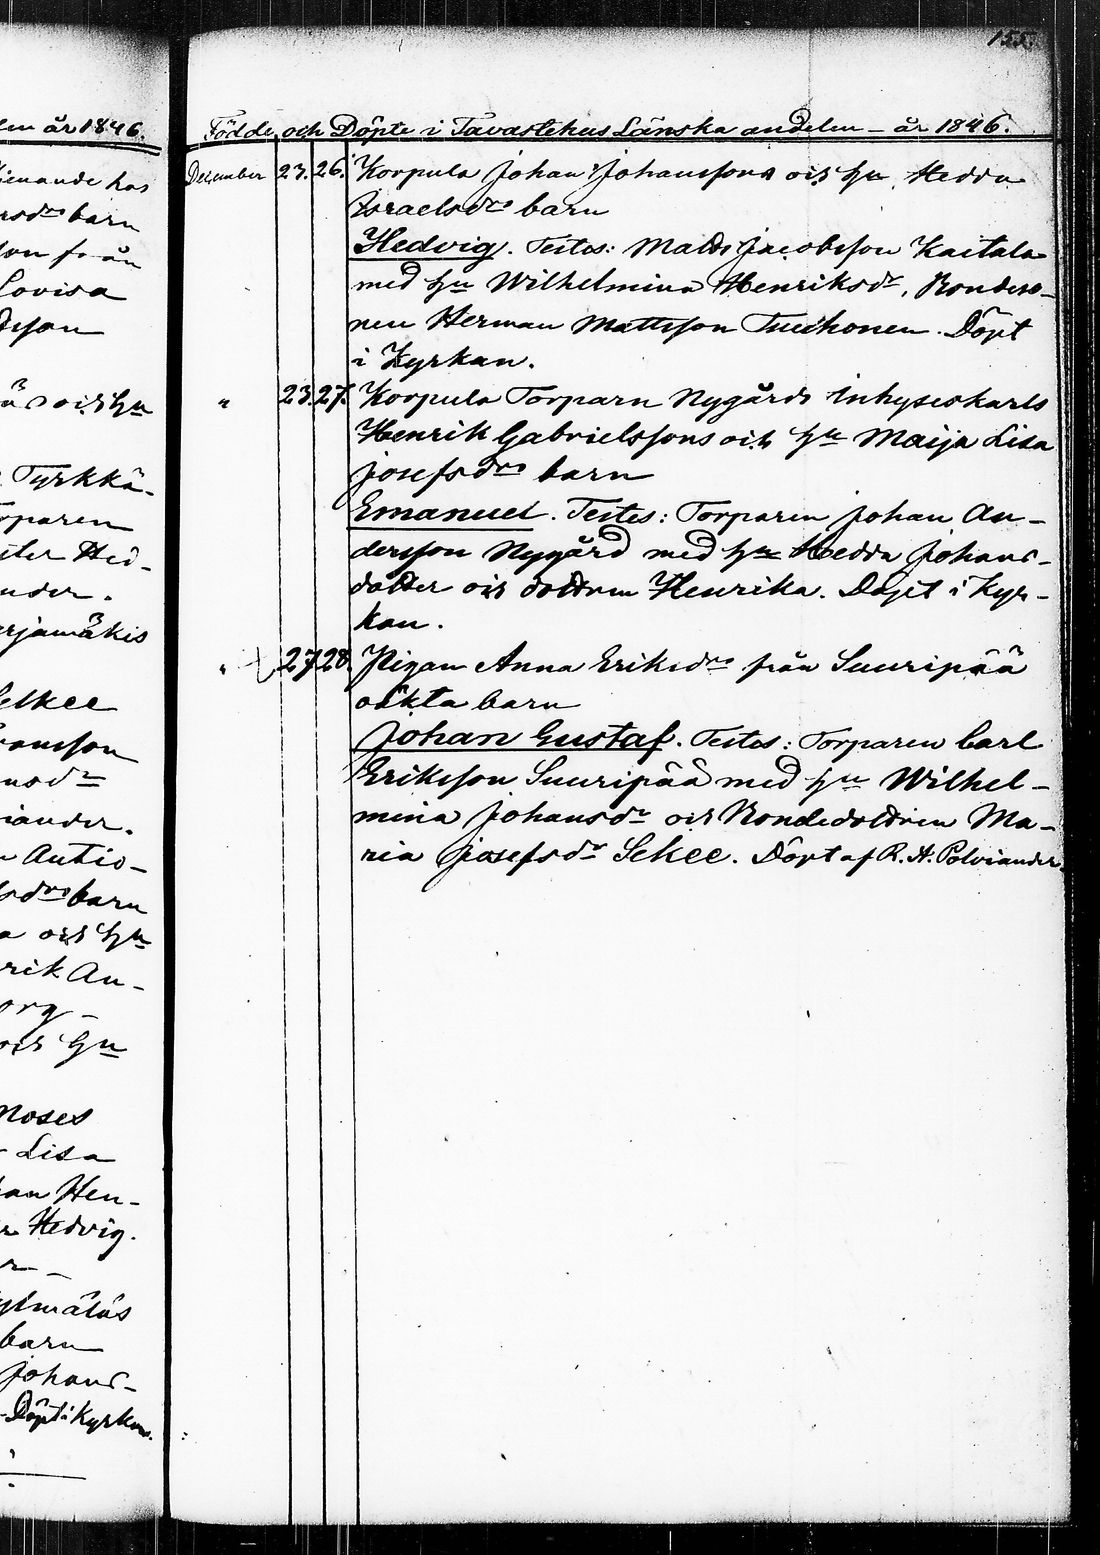 155.
len år 1846.
Födde och Döpte i Tavastehus Länska andelen – år 1846.
tienande hos
rsdrs barn
son från
Lovisa
dsson
ä och hu
Tyrkkä-
rparen
ster Hed-
nder.
erjamäkis
Selkee
hansson
nsdr
iander.
n Autio-
fsdrs barn
a och hu
rik An-
org-
och hu
Moses
- Lisa
an Hen-
r Hedvig.
r-
barn
Johans-
Döpt i Kyrkan.
December 23. 26. Korpula Johan Johanssons och hu Hedda
Israelsdrs barn
Hedvig. Testes: Matts Jacobsson Kaitala
med hu Wilhelmina Henriksdr, Bondeso-
nen Herman Mattsson Tuihonen. Döpt
i Kyrkan.
" 23. 27. Korpula Torparn Nygårds Inhyseskarls
Henrik Gabrielssons och hu Maija Lisa
Josefsdrs barn
Emanuel. Testes: Torparen Johan An-
dersson Nygård med hu Hedda Johans-
dotter och dottren Henrika. Döpt i Kyr-
kan.
" 27 28. Pigan Anna Eriksdrs från Suuripää
oäkta barn
Johan Gustaf. Testes: Torparen Carl
Eriksson Suuripää med hu Wilhel-
mina Johansdr och Bondedottren Ma-
ria Josefsdr Sekee. Döpt af R. H. Polviander.